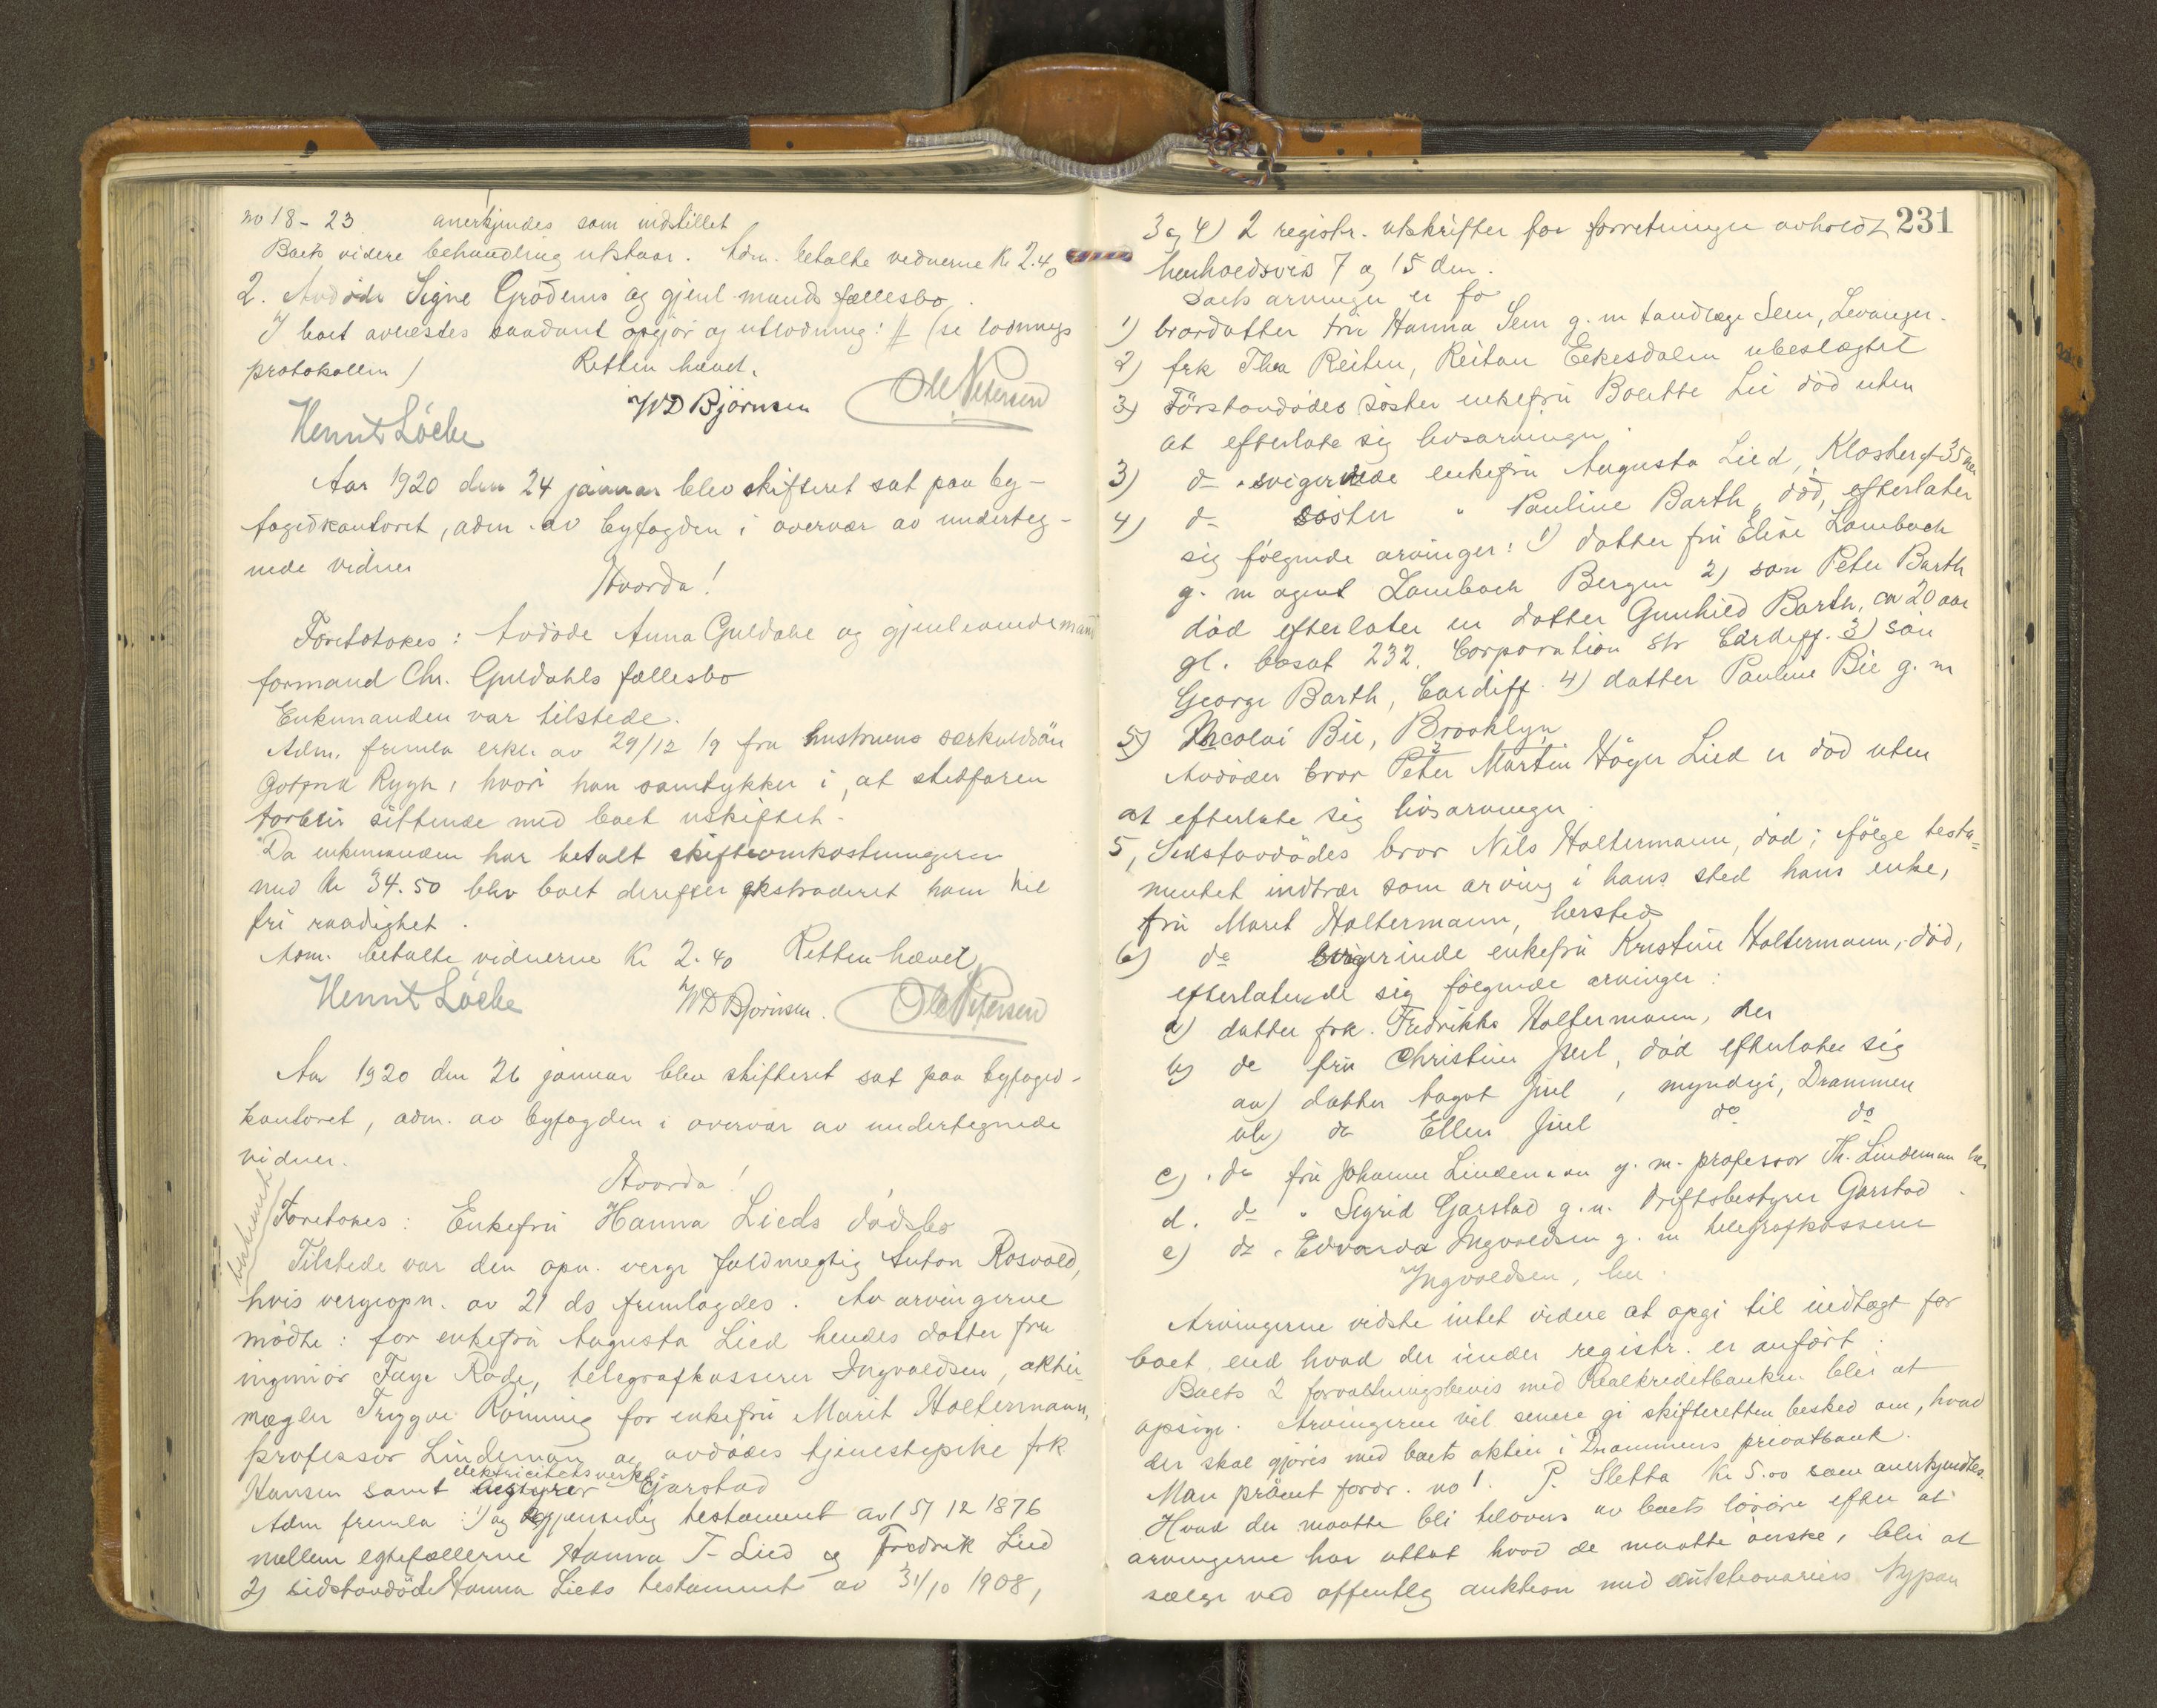 no 18 - 23 anerkjendes som indstillet
Boets videre behandling utstaar. Adm. betalte vidnerne Kr 2.40
2. Avdøde Signe Grødems og gjenl. mands fællesbo.
I boet avlæstes saadant opgjør og utlodning: # (se lodnings
protokollen) Retten hævet.
WD Bjørnsen Ole Petersen
Hennt Löche
Aar 1920 den 24 januar blev skifteret sat paa by-
fogedkontoret, adm. av byfogden i overvær av underteg-
nede vidner
Hvorda!
Foretokes: Avdøde Anna Guldahl og gjenlevende mand
formand Chr. Guldahls fællesbo
Enkemanden var tilstede.
Adm. fremla erkl. av 29/12 19 fra hustruens særkuldsøn
Gotfred Rygh, hvori han samtykker i, at stedfaren
forblir sittende med boet uskiftet.
Da enkemanden har betalt skifteomkostningerne
med Kr 34.50 blev boet derefter ekstraderet ham til
fri raadighet.
Adm. betalte vidnerne Kr 2.40 Retten hævet
Hennt Löche WD Bjørnsen. Ole Petersen
Aar 1920 den 26 januar blev skifteret sat paa byfoged-
kontoret, adm. av byfogden i overvær av undertegnede
vidner.
Hvorda!
Foretokes: Enkefru Hanna Lieds dødsbo
Tilstede var den opn. verge fuldmegtig Anton Rosvold,
hvis vergeopn. av 21 ds fremlagdes. Av arvingerne
møtte: for enkefru Augusta Lied hendes datter fru
ingeniør Faye Rode, telegrafkasserer Ingvaldsen, aktie-
mægler Trygve Rönning for enkefru Marit Holtermann,
professor Lindeman og avdødes tjenestepike frk
elektricitetsverks
Hansen samt bestyrer Garstad
Adm fremla: 1) gjensidig testament av 15/12 1876
mellem egtefællerne Hanna T. Lied og Fredrik Lied
2) sidstavdøde Hanna Lieds testament av 31/10 1908,
231
3 og 4) 2 registr. utskrifter for forretninger avholdt
henholdsvis 7 og 15 den.
Boets arvinger er fo
1) brordatter fru Hanna Sem g. m tandlæge Sem, Levanger.
2) frk Thea Reiten, Reitan Eekesdalen ubeslægtet
3) Førstavdødes søster enkefru Boletthe Lie død uten
at efterlate sig livsarvinger.
3) do svigerinde enkefru Augusta Lied, Klosterg 35 her
4) do søster " Pauline Barth, død, efterlater
sig følgende arvinger: 1) datter fru Elise Lambach
g. m agent Lambach Bergen 2) søn Peter Barth
død efterlater en datter Gunhild Barth, ca 20 aar
gl. bosat 232. Corporation Str Cardiff. 3) søn
George Barth, Cardiff. 4) datter Pauline Bie g. m
Nicolai Bie, Brooklyn
5) Avdødes bror Peter Martin Höyer Lied er død uten
at efterlate sig livsarvinger.
5, Sidstavdødes bror Nils Holtermann, død; ifölge testa-
mentet indtrær som arving i hans sted hans enke,
fru Marit Holtermann, hersted
6) do svigerinde enkefru Kristine Holtermann, død,
efterlatende sig følgende arvinger:
a) datter frk. Fredrikke Holtermann, her
b) do fru Christine Juel, død efterlater sig
aa) datter Aagot Juel, myndig, Drammen
bb) do Ellen Juel do do
c) do fru Johanne Lindeman g. m. professor Th. Lindeman her
d. do " Sigrid Garstad g. m. driftsbestyrer Garstad.
e) do " Edvarda Ingvaldsen g. m telegrafkasserer
Ingvaldsen, her.
Arvingerne vidste intet videre at opgi til indtægt for
boet end hvad der under registr. er anført.
Boets 2 forvaltningsbevis med Realkreditbanken blir at
opsige. Arvingerne vil senere gi skifteretten besked om, hvad
der skal gjøres med boets aktier i Drammens privatbank.
Man prøvet fordr. no 1. P. Sletta Kr 5.00 som anerkjendtes.
Hvad der maatte bli tilovers av boets løsøre efter at
arvingerne har uttat hvad de maatte ønske, blir at
sælge ved offentlig auktion med auktionarius Nypan